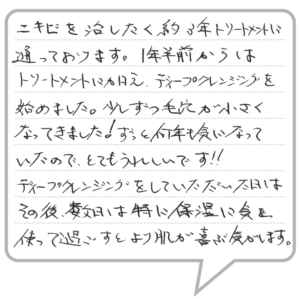 ニキビを治したく約3年トリートメントに
通っております。1年半前からは
トリートメントに加え、ディープクレンジングを
始めました。少しずつ毛穴が小さく
なってきました!ずっと何年も気になって
いたので、とてもうれしいです!!
ディープクレンジングをしていただいた日は
その後、数日は特に保湿に気を
使って過ごすとより肌が喜ぶ気がします。